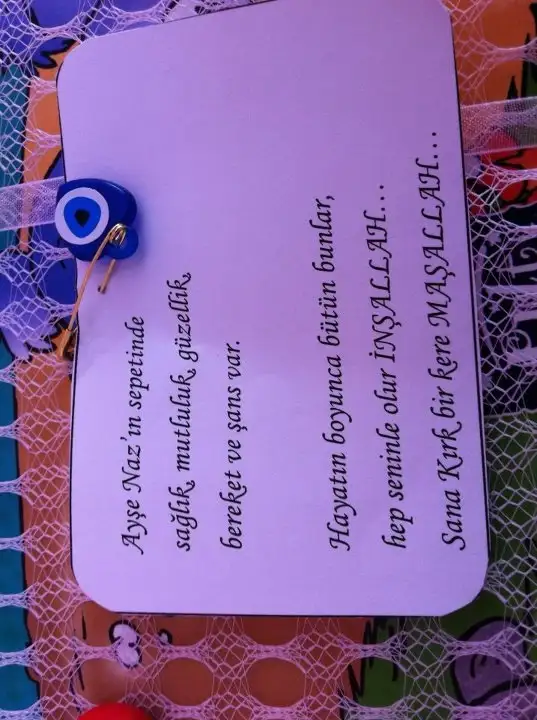 Ayşe Naz'ın sepetinde
sağlık, mutluluk, güzellik,
bereket ve şans var.
Hayatın boyunca bütün bunlar,
hep seninle olur İNŞALLAH...
Sana Kırk bir kere MAŞALLAH...